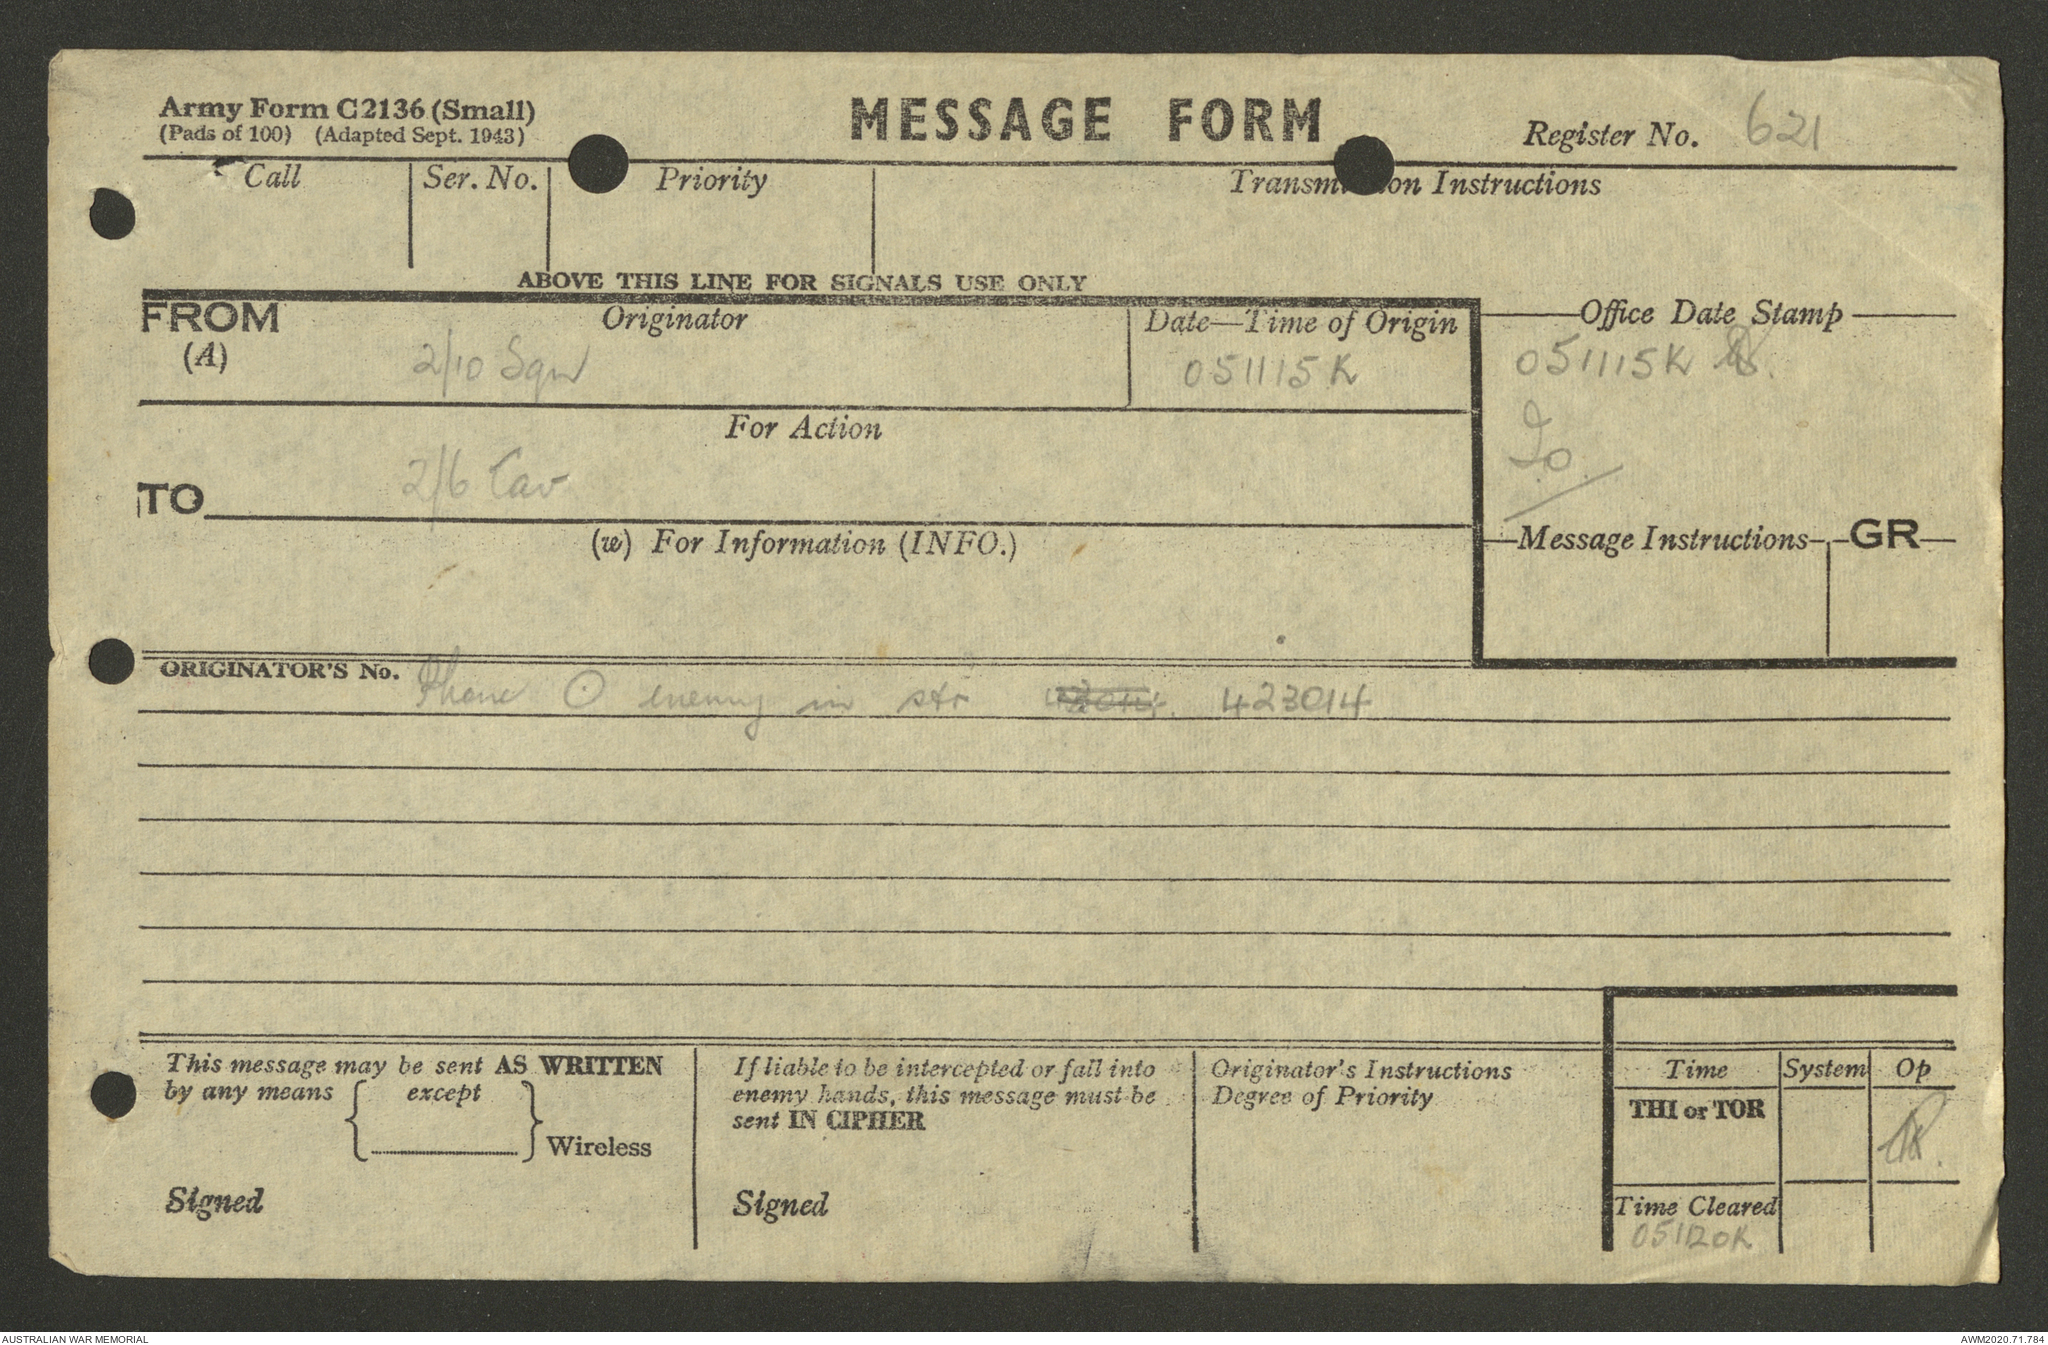 Army Form C2136 (Small)
(Pads of 100) (Adapted Sept. 1943)
MESSAGE FORM
Register No. 621
Call
Ser. No.
Priority
Transm on Instructions
ABOVE THIS LINE FOR SIGNALS USE ONLY
FROM
(A)
Originator
2/10 Sqn
Date—Time of Origin
051115K
Office Date Stamp
051115K
For Action
TO
2/6 Cav
Io.
(w) For Information (INFO.)
Message Instructions
GR
ORIGINATOR'S No.
Phone O enemy in str 423014
This message may be sent AS WRITTEN
by any means except
Wireless
Signed
If liable to be intercepted or fall into
enemy hands, this message must be
sent IN CIPHER
Signed
Originator's Instructions
Degree of Priority
Time
System
Op
THI or TOR
Time Cleared
051120K
AUSTRALIAN WAR MEMORIAL
AWM2020.71.784